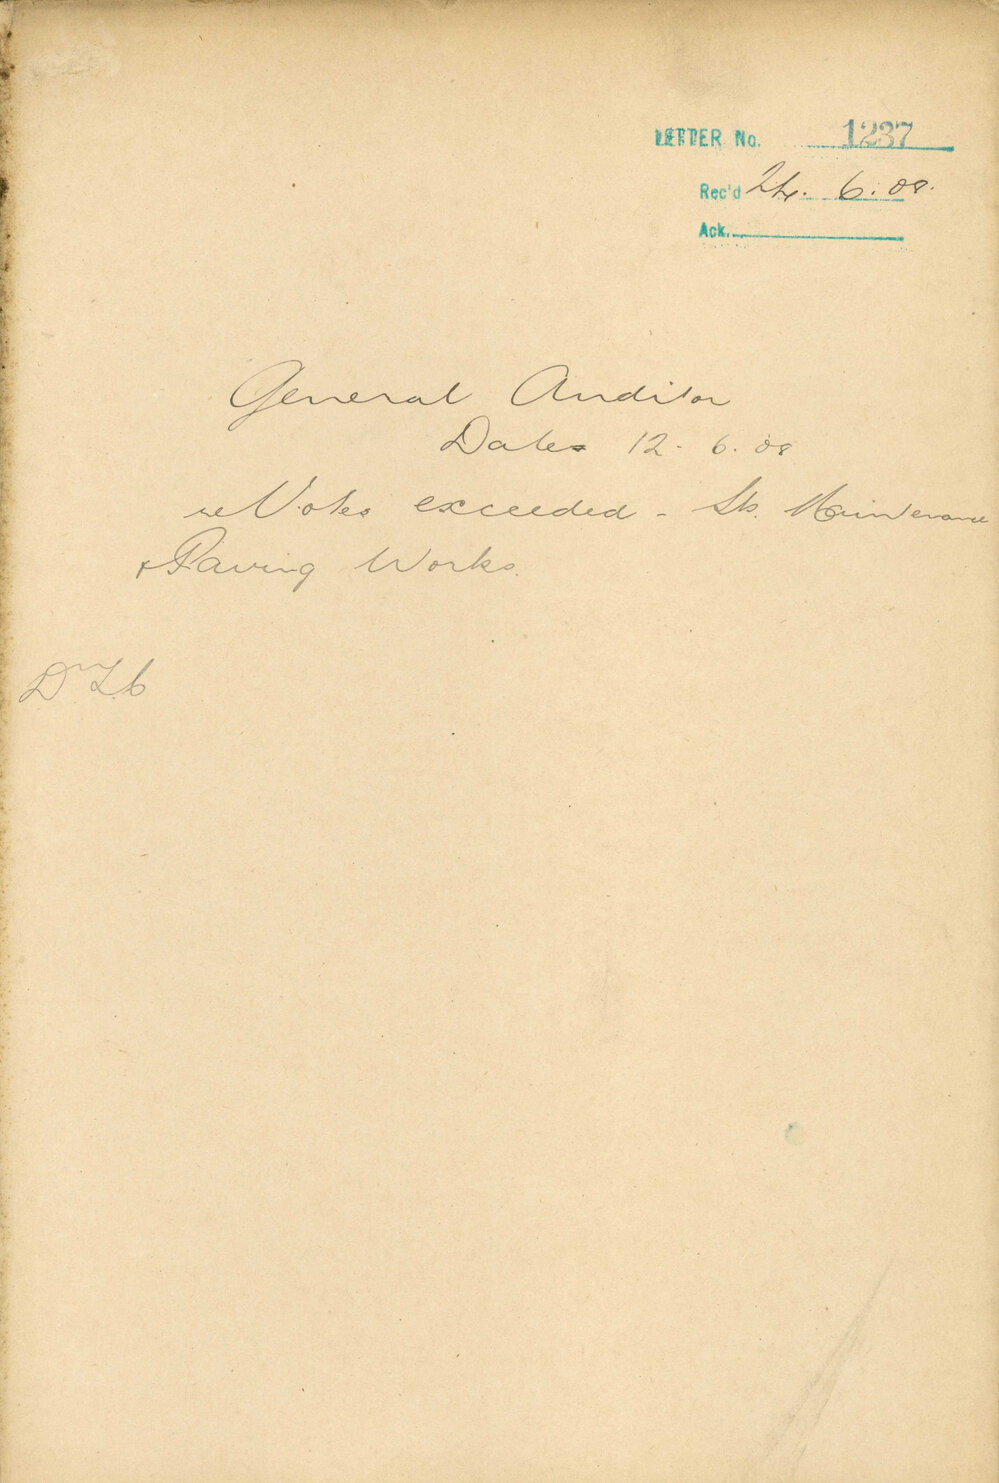 LETTER No. 1237
Rec'd 24. 6. 08.
Ack.
General Auditor
Dates 12. 6. 08
re Votes exceeded - Sts. Maintenance
& Paving Works.